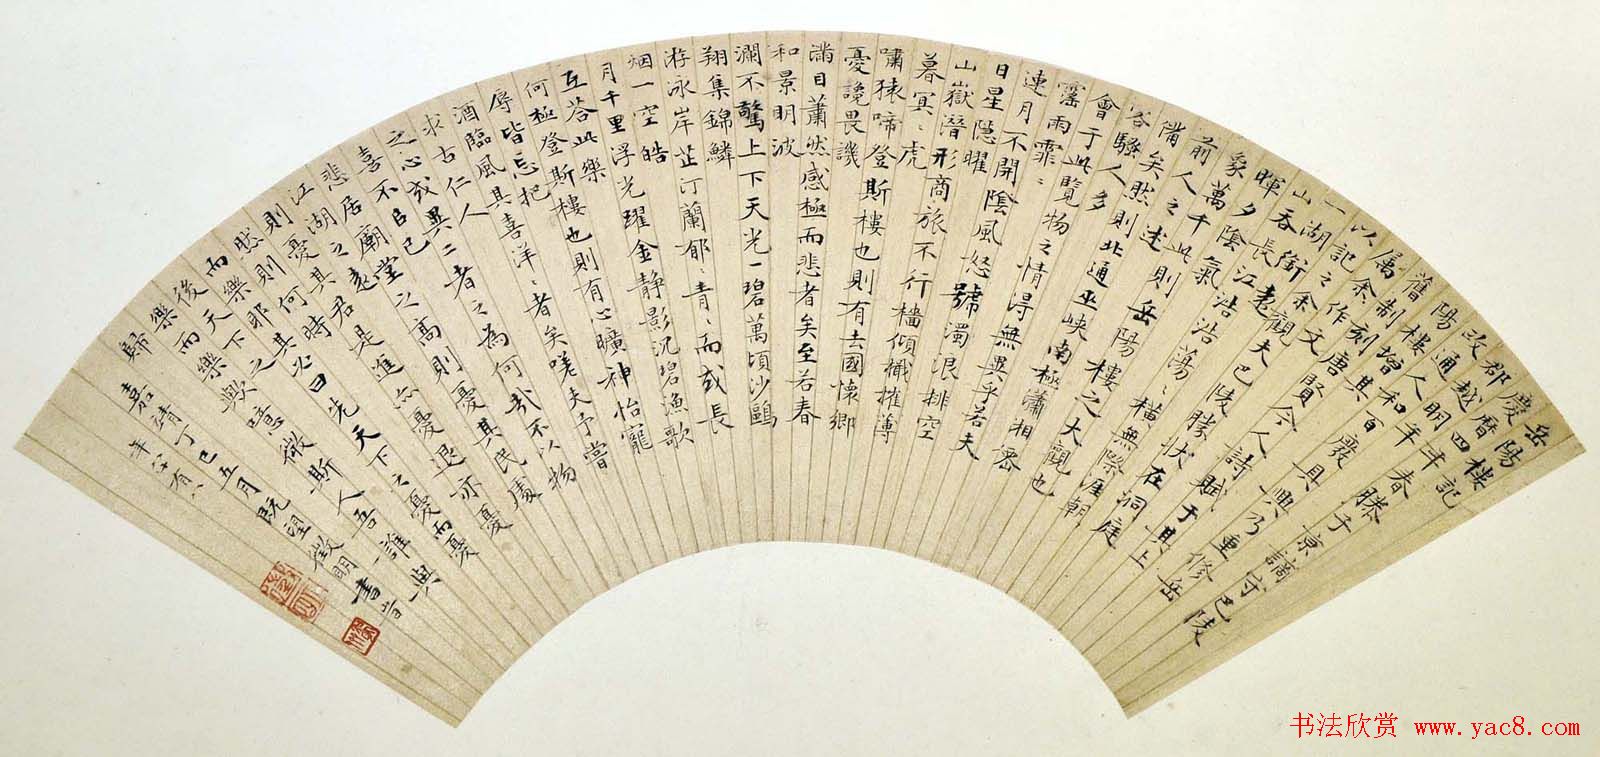 岳陽樓記
慶曆四年春滕子京謫守巴陵
郡越明年
政通人和百廢具興乃重修岳
陽樓增其
舊制刻唐賢今人詩賦于其上
屬余作文
以記之余觀夫巴陵勝狀在洞庭
一湖銜遠
山吞長江浩浩蕩〻橫無際涯朝
暉夕陰氣
象萬千此則岳陽樓之大觀也
前人之述
備矣然則北通巫峽南極瀟湘
客騷人多
會于此覽物之情得無異乎若夫
霪雨霏〻
連月不開陰風怒號濁浪排空
日星隱曜
山嶽潛形商旅不行檣傾檝摧薄
暮冥〻虎
嘯猿啼登斯樓也則有去國懷鄉
憂讒畏譏
滿目蕭然感極而悲者矣至若春
和景明波
瀾不驚上下天光一碧萬頃沙鷗
翔集錦鱗
游泳岸芷汀蘭郁〻青〻而或長
烟一空皓
月千里浮光躍金静影沉碧漁歌
互荅此樂
何極登斯樓也則有心曠神怡寵
辱皆忘把
酒臨風其喜洋〻者矣嗟夫予嘗
求古仁人
之心或異二者之為何哉不以物
喜不以己
悲居廟堂之高則憂其民處
江湖之遠
則憂其君是進亦憂退亦憂
然則何時
而樂耶其必曰先天下之憂而憂
後天下之
樂而樂歟噫微斯人吾誰與
歸
嘉靖丁巳五月既望徵明書時
年八十有八
书法欣赏 www.yac8.com